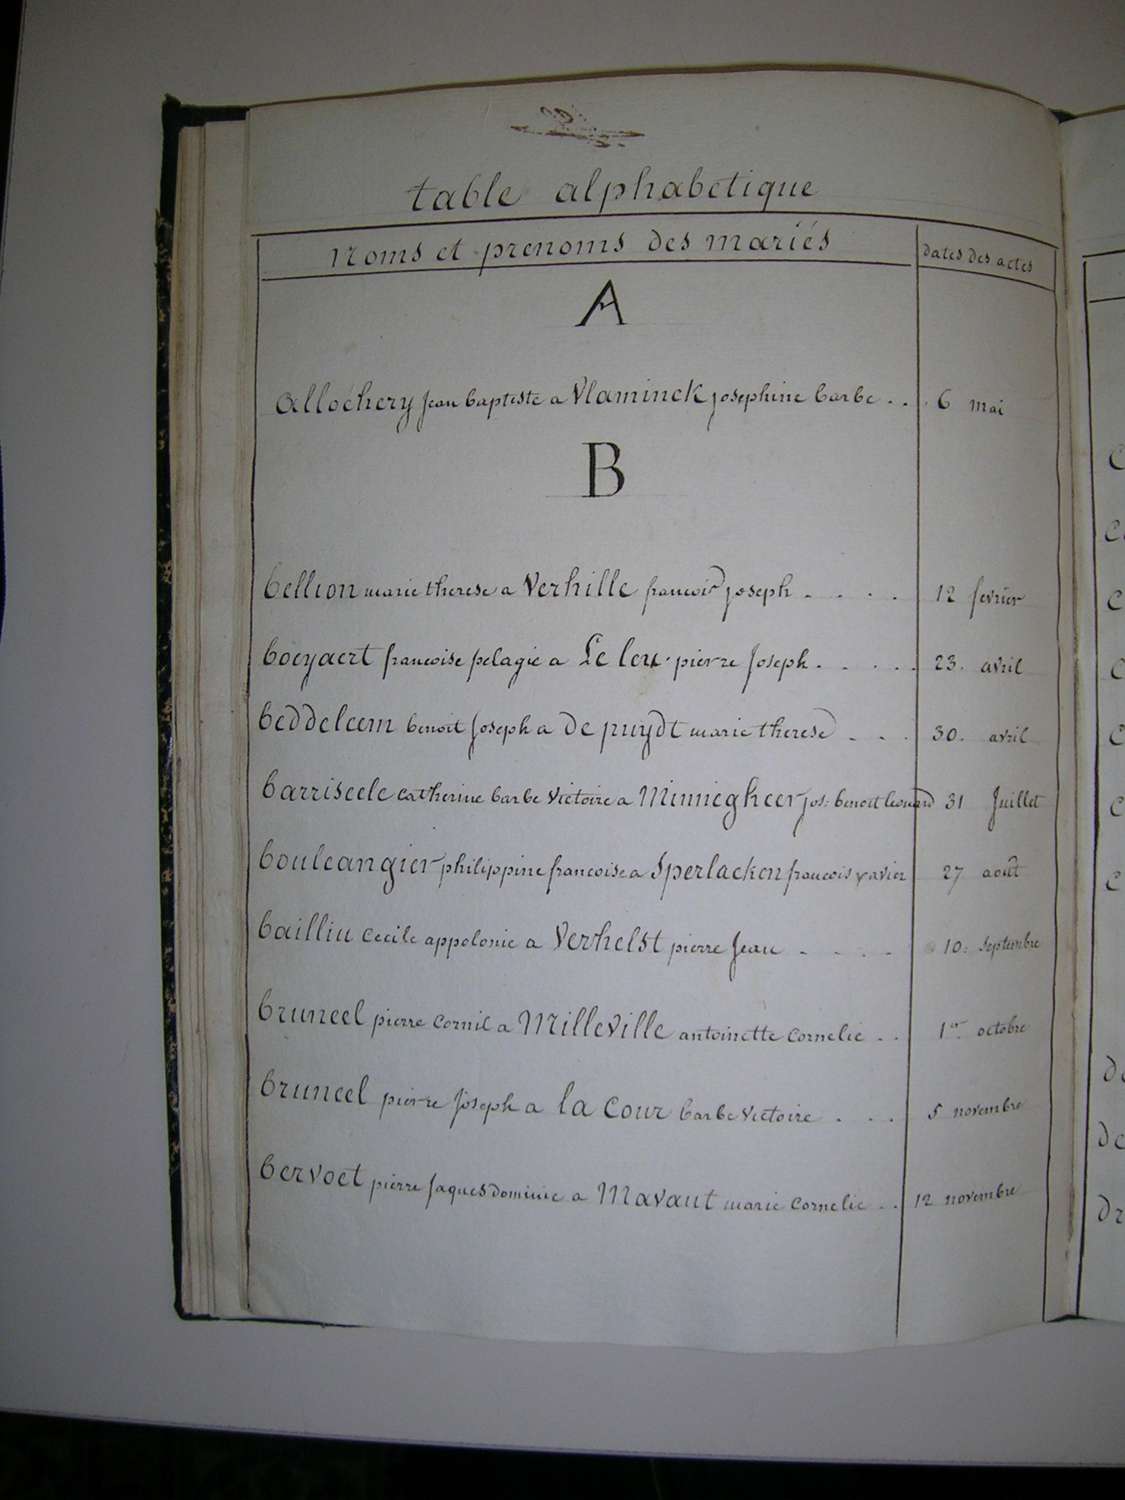 table alphabetique
noms et prenoms des mariés
dates des actes
A
allochery jean baptiste a Vlaminck josephine barbe . . . 6 mai
B
bellion marie therese a Verhille francois joseph . . . . 12 fevrier
boeyaert francoise pelagie a Le leu pierre Joseph . . . . . 23. avril
beddeleem benoit Joseph a De puydt marie therese . . . 30. avril
barriseele catherine barbe Victoire a Minnegheer jos: benoit leonard 31 Juillet
boulcangier philippine francoise a Sperlacken francois xavier 27 août
bailliu Cecile appolonie a Verhelst pierre Jean . . . . 10: septembre
bruneel pierre Cornil a Milleville antoinette Cornelie . . 1er octobre
bruneel pierre Joseph a la Cour barbe victoire . . . 5 novembre
bervoet pierre Jaques dominic a Mavaut marie Cornelie . . 12 novembre